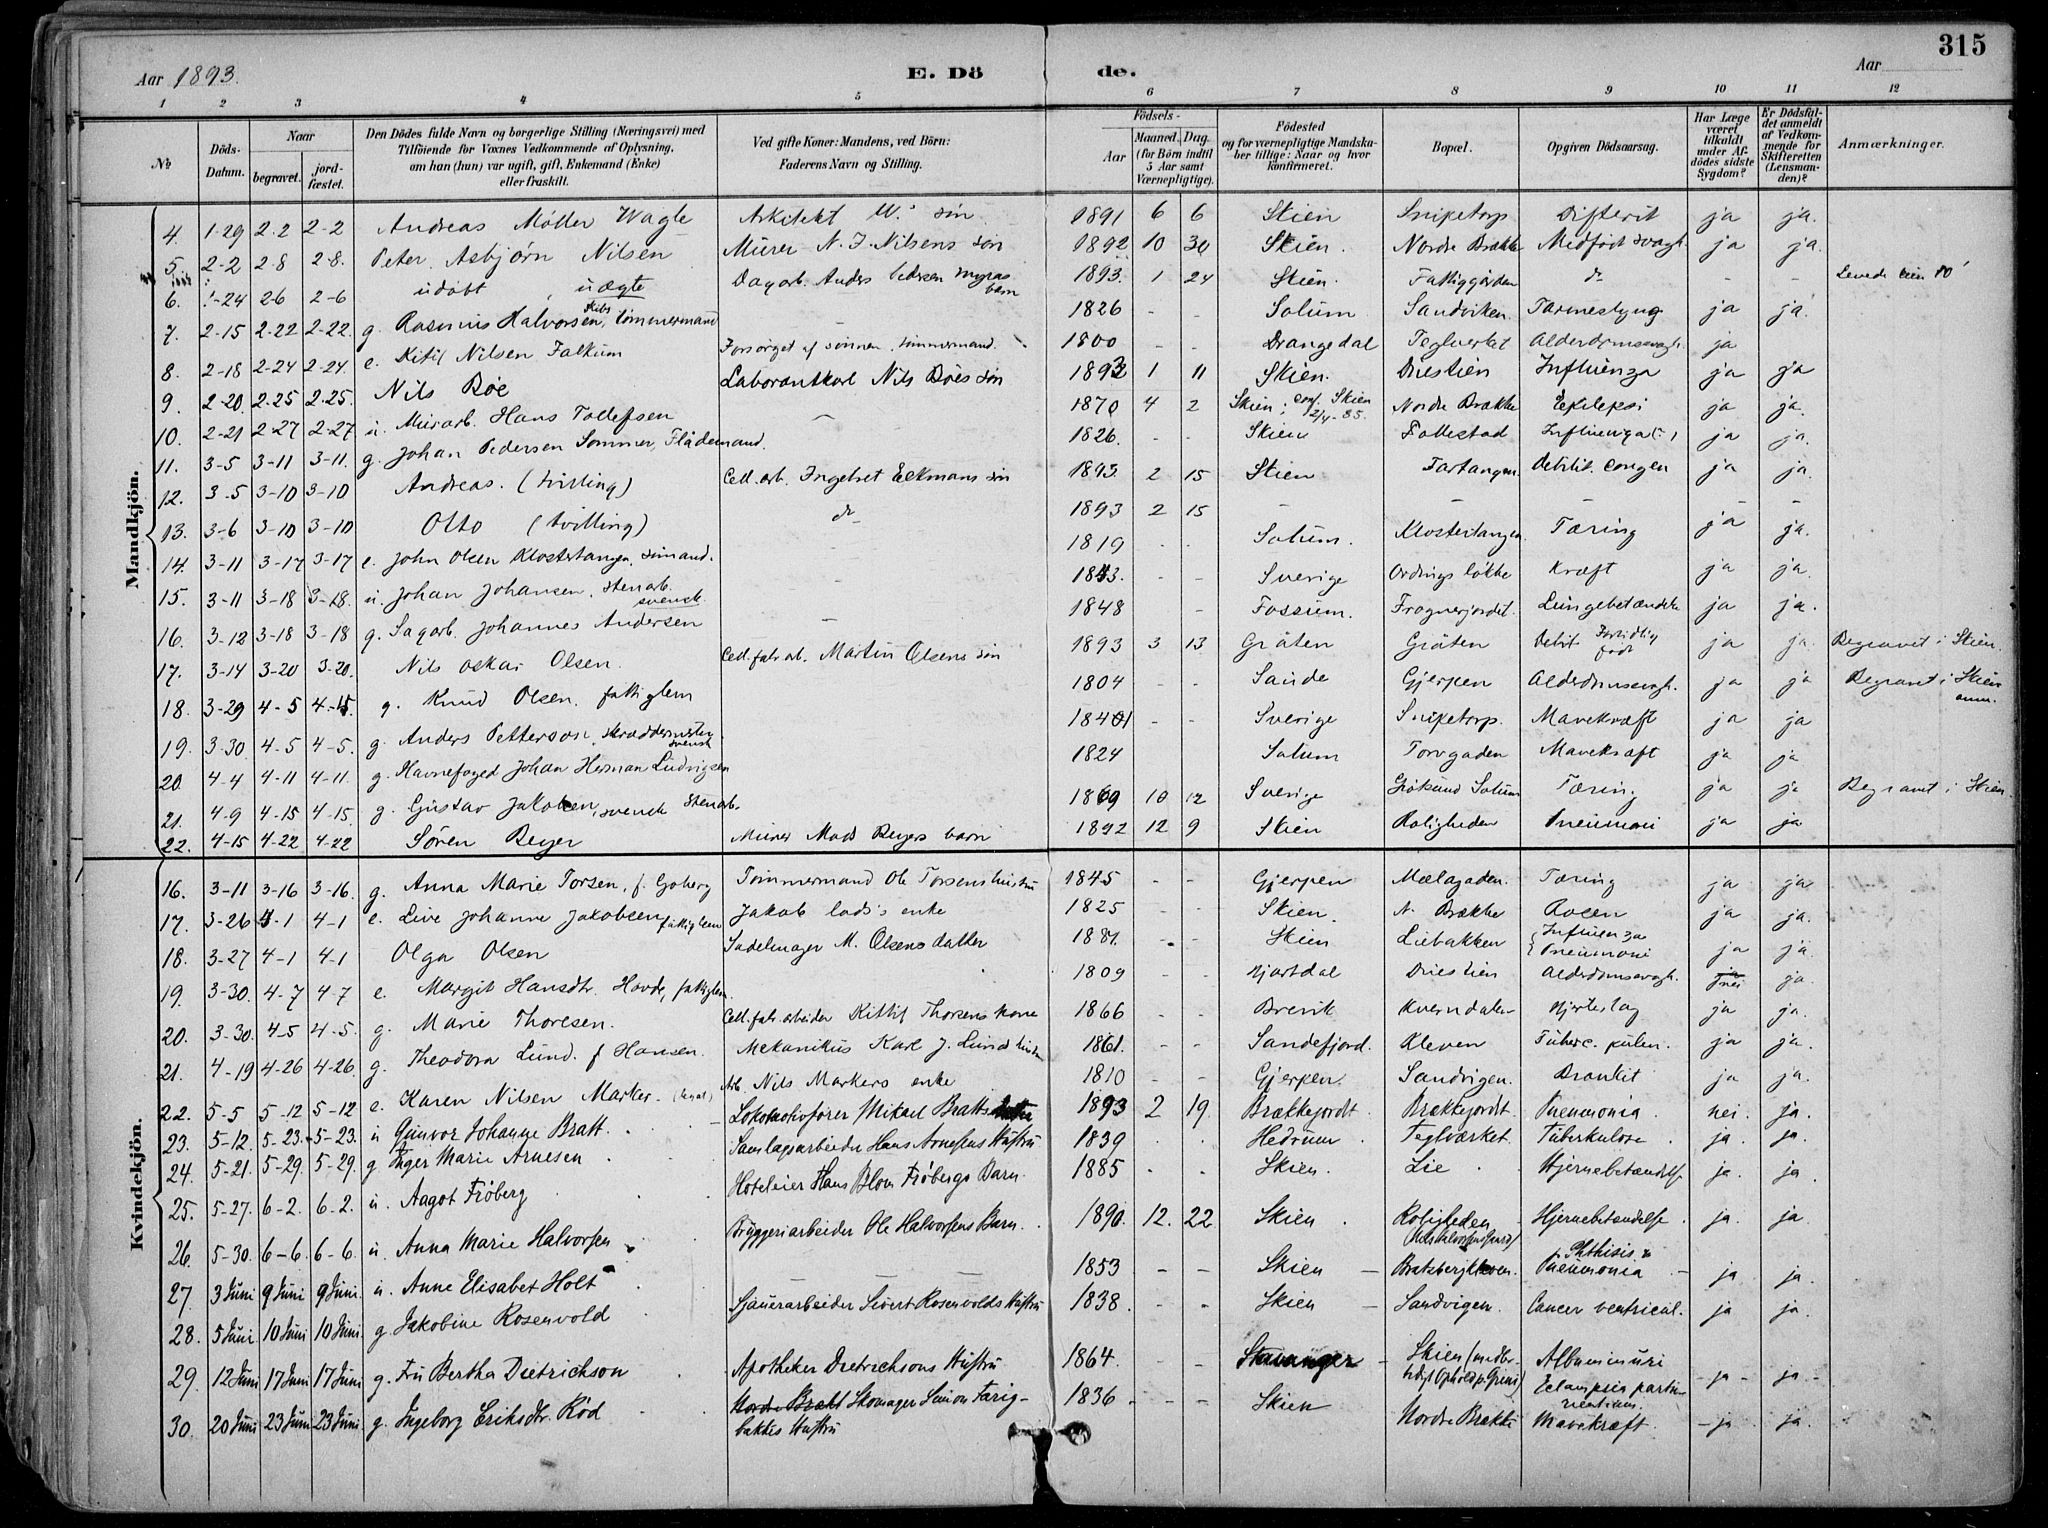 315
Aar 1893.
E. Dö de.
Aar
1 2 3 4 5 6 7 8 9 10 11 12
No
Döds-Datum.
Naar
begravet.
jord-fæstet.
Den Dödes fulde Navn og borgerlige Stilling (Næringsvei) med
Tilföiende for Voxnes Vedkommende af Oplysning,
om han (hun) var ugift, gift, Enkemand (Enke)
eller fraskilt.
Ved gifte Koner: Mandens, ved Börn:
Faderens Navn og Stilling.
Födsels-
Aar
Maaned. Dag.
(for Börn indtil
5 Aar samt
Værnepligtige).
Födested
og for værnepligtige Mandska-
ber tillige: Naar og hvor
konfirmeret.
Bopæl.
Opgiven Dödsaarsag.
Har Læge
været
tilkaldt
under Af-
dödes sidste
Sygdom?
Er Dödsfal-
det anmeldt
af Vedkom-
mende for
Skifteretten
(Lensman-
den)?
Anmærkninger.
Mandkjön.
4. 1-29 2-2 2-2 Andreas Møller Wagle Arkitekt W.s søn 1891 6 6 Skien Snipetorp Difterit ja ja.
5. 2-2 2-8 2-8. Peter Asbjørn Nilsen Murer N. J. Nilsens søn 1892 10 30 Skien. Nordre Brække Medfødt svagh. ja ja.
6. 1-24 2-6 2-6 udøbt, uægte Dagarb. Anders Pedersen Myras barn 1893. 1 24 Skien. Fattiggården do - - Levede kun 10'
7. 2-15 2-22 2-22. g. Rasmus Halvorsen, skibstømmermand - 1826 - - Solum Sandviken. Tarmeslyng ja ja.
8. 2-18 2-24 2-24. e. Kitil Nilsen Falkum Forsørget af sønnen, tømmermand. 1800 - - Drangedal Teglverket Alderdomssvagh. ja
9. 2-20. 2-25 2-25. Nils Bøe Laborantkarl Nils Bøes søn 1893 1 11 Skien. Duestien Influenza ja ja
10. 2-21 2-27 2-27 u. Murarb. Hans Tollefsen - 1870 4 2 Skien; conf. Skien 2/4-85. Nordre Brække Epilepsi ja ja.
11. 3-5 3-11 3-11. g. Johan Pedersen Sommer, Flådemand. 1826. - - Skien Follestad Influenza (?) ja ja.
12. 3-5 3-10 3-10 Andreas. (tvilling) Cell. arb. Ingebret Eekmans søn 1893. 2 15 Skien Tartangen. Debilit. congen ja ja.
13. 3-6 3-10 3-10 Otto (tvilling) do 1893 2 15 - - - - -
14. 3-11 3-17 3-17 e. John Olsen Klostertangen, sømand. - 1819 - - Solum. Klostertangen Tæring ja ja.
15. 3-11 3-18 3-18. u. Johan Johansen, Stenarb. svensk. - - - Sverige Ordrings løkke Kræft ja ja.
16. 3-12 3-18 3-18 g. Sagarb. Johannes Andersen - 1848 - Fossum. Frognerjordet. Lungebetændelse ja ja.
17. 3-14 3-20 3-20. Nils Oskar Olsen. Cell. fabr. arb. Martin Olsens søn 1893 3 13 Gråten Gråten Debil. Fortidlig født ja ja. Begravet i Skien.
18. 3-29 4-5 4-5 g. Knud Olsen. fattiglem 1804 - - Sande Gjerpen Alderdomssvagh. ja ja Begravet i Skien
19. 3-30 4-5 4-5. g. Anders Petterson, skræddermester, svensk - - Sverige Snipetorp. Mavekræft ja ja
20. 4-4 4-11 4-11. g. Havnefoged Johan Herman Ludvigsen 1824 Solum Torvgaden Mavekræft ja ja
21. 4-9 4-15 4-15. g. Gustav Jakobsen, svensk Stenarb. 1869 10 12 Sverige Solum Tæring ja ja Begravet i Skien.
22. 4-15 4-22 4-22 Søren Beyer Murer Mads Beyers barn 1892 12 9 Skien Roligheden Pneumoni ja ja
Kvindekjön.
16. 3-11 3-16 3-16. g. Anna Marie Torsen, f. Goberg Tømmermand Ole Torsens hustru 1845 - - Gjerpen Mælagaden. Tæring ja ja
17. 3-26 4-1 4-1 e. Live Johanne Jakobsen fattiglem Jakob lods's enke 1825 - - Skien. N. Brække Rosen ja ja.
18. 3-27 4-1 4-1 Olga Olsen Sadelmager M. Olsens datter 1881. - - Skien Liebakken Influenza Pneumoni ja ja
19. 3-30. 4-7 4-7 e. Margit Hansdtr. Hovde, fattiglem. 1809 - - Hjartdal Duestien Alderdomssvagh. nei ja.
20. 3-30. 4-5 4-5. g. Marie Thoresen. Cell. fabr. arbeider Kittil Thorsens kone 1866 - - Brevik Kverndalen Hjerteslag ja ja.
21. 4-19 4-26 4-26. g. Theodora Lund. f Hansen. Mekanikus Karl J. Lunds hustru 1861. - - Sandefjord. Kleven Tuberc. pulm. ja ja.
22. 5-5 5-12 5-12 e. Karen Nilsen Marker Arb. Nils Markers enke 1810 - - Gjerpen. Sandvigen. Bronkit ja ja.
23. 5-12. 5-23. 5-23. u Gunvor Johanne Bratt. Lokomotivfører Mikael Bratts datter 1893 2 19. Brækkejordt. Brækkejordt. Pneumonia. nei. ja.
24. 5-21. 5-29. 5-29. g Inger Marie Arnesen Samlagsarbeider Hans Arnesens Hustru 1839 Hedrum Teglværket. Tuberkulose ja. ja.
25. 5-27. 6-2. 6-2. u. Aagot Frøberg Hoteleier Hans Blom Frøbergs Barn 1885 - - Skien. Lie Hjernebetændelse ja. ja
26. 5-30. 6-6. 6-6. u. Anna Marie Halvorsen Bryggeriarbeider Ole Halvorsens Barn. 1890. 12. 22. Skien. Roligheden Hjernebetændelse. ja. ja
27. 3 Juni 9 Juni 9 Juni. u. Anne Elisabet Holt - 1853 - - Skien - Bratsbergkleven. Phthisis & Pneumonia - ja ja.
28. 5 Juni 10 Juni 10 Juni. g. Jakobine Rosenvold Sjauerarbeider Sivert Rosenvolds Hustru 1838. - - Skien - Sandvigen. Cancer ventricul. ja ja.
29. 12 Juni 17 Juni 17 Juni g. Fru Bertha Dietrichson Apotheker Dietrichsons Hustru 1864 - - Stavanger - Skien (midlertidigt Ophold p. Grini) Albuminuri Eclampsia parturientium. - ja - ja -
30. 20 Juni 23 Juni 23 Juni g. Ingeborg Eriksdtr. Röd Nordre Brækk Skomager Simon Farigbakkes Hustru 1836 - - Skien Nordre Brække Mavekræft. - ja. ja.